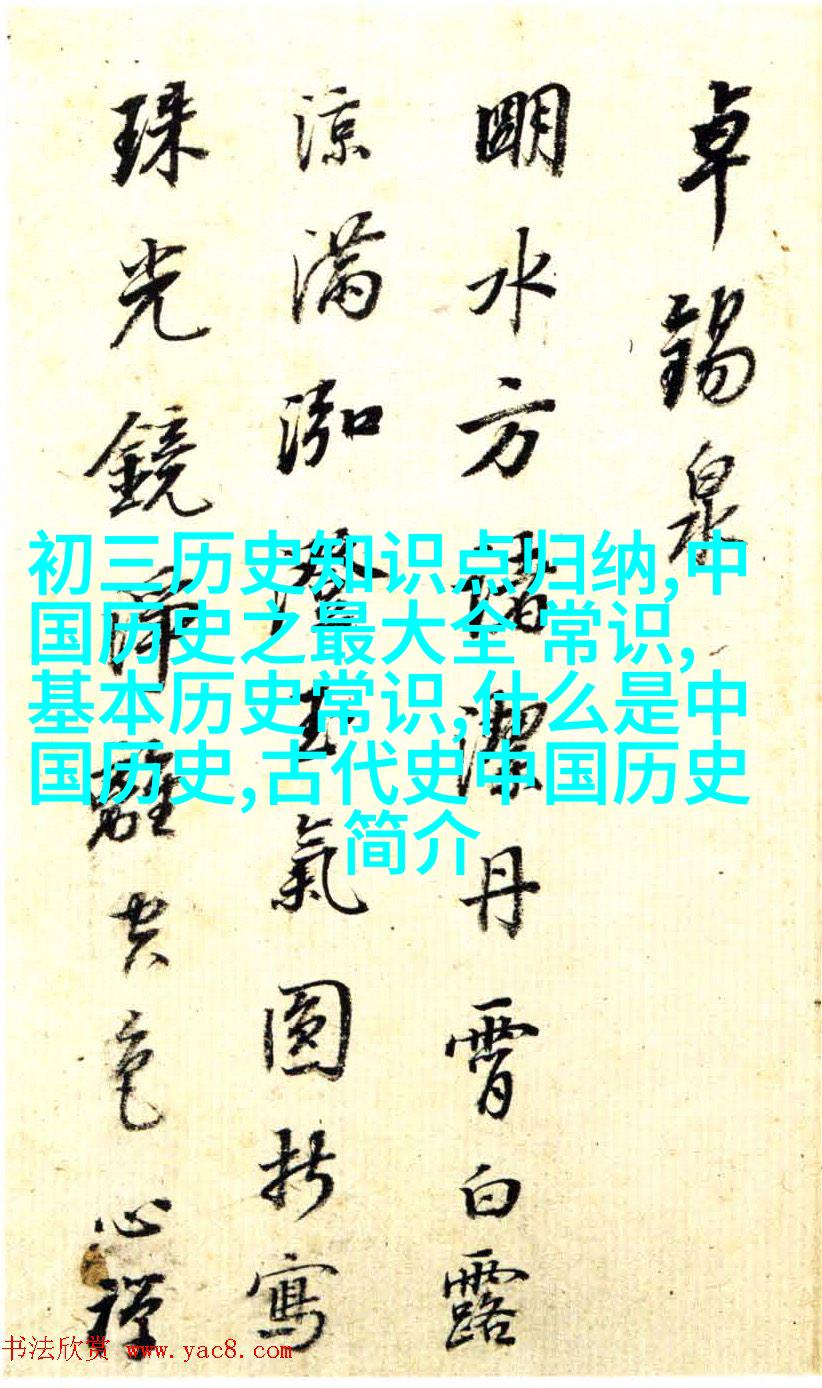 卓錫泉
朙水方諸潔丹霄白露
涼滿泓澄玉氣圓折寫
珠光鏡淨離空色心禪
初三历史知识点归纳,中
国历史之最大全 常识,
基本历史常识,什么是中
国历史,古代史中国历史
简介
书法欣赏 www.yac8.com